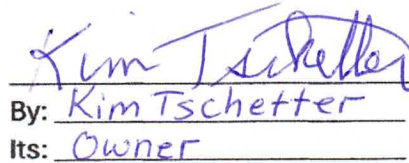 Kim Tschetter
By: Kim Tschetter
Its: Owner